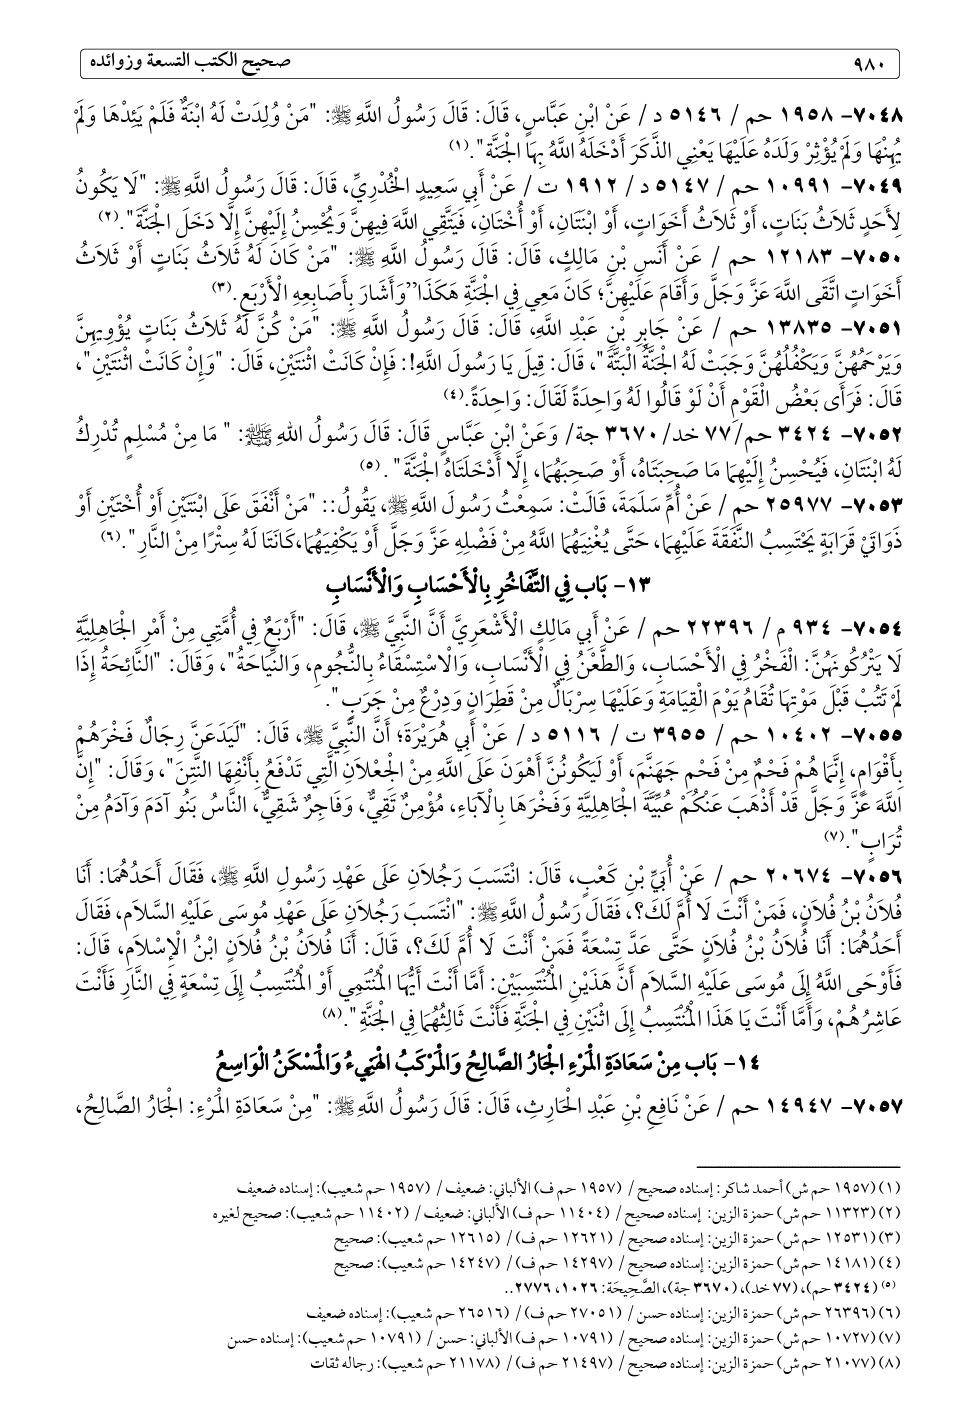 ٩٨٠ صحيح الكتب التسعة وزوائده
٧٠٤٨- ١٩٥٨ حم / ٥١٤٦ د / عَنْ ابْنِ عَبَّاسٍ، قَالَ: قَالَ رَسُولُ اللَّهِ ﷺ: "مَنْ وُلِدَتْ لَهُ ابْنَةٌ فَلَمْ يَئِدْهَا وَلَمْ
يُهِنْهَا وَلَمْ يُؤْثِرْ وَلَدَهُ عَلَيْهَا يَعْنِي الذَّكَرَ أَدْخَلَهُ اللَّهُ بِهَا الْجَنَّةَ".(١)
٧٠٤٩- ١٠٩٩١ حم / ٥١٤٧ د/ ١٩١٢ ت / عَنْ أَبِي سَعِيدٍ الْخُدْرِيِّ، قَالَ: قَالَ رَسُولُ اللَّهِ ﷺ: "لَا يَكُونُ
لِأَحَدٍ ثَلَاثُ بَنَاتٍ، أَوْ ثَلَاثُ أَخَوَاتٍ، أَوْ ابْنَتَانِ، أَوْ أُخْتَانِ، فَيَتَّقِي اللَّهَ فِيهِنَّ وَيُحْسِنُ إِلَيْهِنَّ إِلَّا دَخَلَ الْجَنَّةَ".(٢)
٧٠٥٠- ١٢١٨٣ حم / عَنْ أَنَسِ بْنِ مَالِكٍ، قَالَ: قَالَ رَسُولُ اللَّهِ ﷺ: "مَنْ كَانَ لَهُ ثَلَاثُ بَنَاتٍ أَوْ ثَلَاثُ
أَخَوَاتٍ اتَّقَى اللَّهَ عَزَّ وَجَلَّ وَأَقَامَ عَلَيْهِنَّ؛ كَانَ مَعِي فِي الْجَنَّةِ هَكَذَا" وَأَشَارَ بِأَصَابِعِهِ الْأَرْبَعِ.(٣)
٧٠٥١- ١٣٨٣٥ حم / عَنْ جَابِرِ بْنِ عَبْدِ اللَّهِ، قَالَ: قَالَ رَسُولُ اللَّهِ ﷺ: "مَنْ كُنَّ لَهُ ثَلَاثُ بَنَاتٍ يُؤْوِيهِنَّ
وَيَرْحَمُهُنَّ وَيَكْفُلُهُنَّ وَجَبَتْ لَهُ الْجَنَّةُ الْبَتَّةَ"، قَالَ: قِيلَ يَا رَسُولَ اللَّهِ!: فَإِنْ كَانَتْ اثْنَتَيْنِ، قَالَ: "وَإِنْ كَانَتْ اثْنَتَيْنِ"،
قَالَ: فَرَأَى بَعْضُ الْقَوْمِ أَنْ لَوْ قَالُوا لَهُ وَاحِدَةً لَقَالَ: وَاحِدَةً.(٤)
٧٠٥٢- ٣٤٢٤ حم/ ٧٧ خد/ ٣٦٧٠ جة/ وَعَنْ ابْنِ عَبَّاسٍ قَالَ: قَالَ رَسُولُ اللهِ ﷺ: " مَا مِنْ مُسْلِمٍ تُدْرِكُ
لَهُ ابْنَتَانِ، فَيُحْسِنُ إِلَيْهِمَا مَا صَحِبَتَاهُ، أَوْ صَحِبَهُمَا، إِلَّا أَدْخَلَتَاهُ الْجَنَّةَ" .(٥)
٧٠٥٣- ٢٥٩٧٧ حم / عَنْ أُمِّ سَلَمَةَ، قَالَتْ: سَمِعْتُ رَسُولَ اللَّهِ ﷺ، يَقُولُ:: "مَنْ أَنْفَقَ عَلَى ابْنَتَيْنِ أَوْ أُخْتَيْنِ أَوْ
ذَوَاتَيْ قَرَابَةٍ يَحْتَسِبُ النَّفَقَةَ عَلَيْهِمَا، حَتَّى يُغْنِيَهُمَا اللَّهُ مِنْ فَضْلِهِ عَزَّ وَجَلَّ أَوْ يَكْفِيَهُمَا، كَانَتَا لَهُ سِتْرًا مِنْ النَّارِ".(٦)
١٣- بَاب فِي التَّفَاخُرِ بِالْأَحْسَابِ وَالْأَنْسَابِ
٧٠٥٤- ٩٣٤ م / ٢٢٣٩٦ حم / عَنْ أَبِي مَالِكٍ الْأَشْعَرِيَّ أَنَّ النَّبِيَّ ﷺ، قَالَ: "أَرْبَعٌ فِي أُمَّتِي مِنْ أَمْرِ الْجَاهِلِيَّةِ
لَا يَتْرُكُونَهُنَّ: الْفَخْرُ فِي الْأَحْسَابِ، وَالطَّعْنُ فِي الْأَنْسَابِ، وَالْاسْتِسْقَاءُ بِالنُّجُومِ، وَالنِّيَاحَةُ"، وَقَالَ: "النَّائِحَةُ إِذَا
لَمْ تَتُبْ قَبْلَ مَوْتِهَا تُقَامُ يَوْمَ الْقِيَامَةِ وَعَلَيْهَا سِرْبَالٌ مِنْ قَطِرَانٍ وَدِرْعٌ مِنْ جَرَبٍ".
٧٠٥٥- ١٠٤٠٢ حم / ٣٩٥٥ ت / ٥١١٦ د / عَنْ أَبِي هُرَيْرَةَ؛ أَنَّ النَّبِيَّ ﷺ، قَالَ: "لَيَدَعَنَّ رِجَالٌ فَخْرَهُمْ
بِأَقْوَامٍ، إِنَّمَا هُمْ فَحْمٌ مِنْ فَحْمِ جَهَنَّمَ، أَوْ لَيَكُونُنَّ أَهْوَنَ عَلَى اللَّهِ مِنْ الْجِعْلَانِ الَّتِي تَدْفَعُ بِأَنْفِهَا النَّتِنَ"، وَقَالَ: "إِنَّ
اللَّهَ عَزَّ وَجَلَّ قَدْ أَذْهَبَ عَنْكُمْ عُبِّيَّةَ الْجَاهِلِيَّةِ وَفَخْرَهَا بِالْآبَاءِ، مُؤْمِنٌ تَقِيٌّ، وَفَاجِرٌ شَقِيٌّ، النَّاسُ بَنُو آدَمَ وَآدَمُ مِنْ
تُرَابٍ".(٧)
٧٠٥٦- ٢٠٦٧٤ حم / عَنْ أُبَيِّ بْنِ كَعْبٍ، قَالَ: انْتَسَبَ رَجُلَانِ عَلَى عَهْدِ رَسُولِ اللَّهِ ﷺ، فَقَالَ أَحَدُهُمَا: أَنَا
فُلَانُ بْنُ فُلَانٍ، فَمَنْ أَنْتَ لَا أُمَّ لَكَ؟، فَقَالَ رَسُولُ اللَّهِ ﷺ: "انْتَسَبَ رَجُلَانِ عَلَى عَهْدِ مُوسَى عَلَيْهِ السَّلَام، فَقَالَ
أَحَدُهُمَا: أَنَا فُلَانُ بْنُ فُلَانٍ حَتَّى عَدَّ تِسْعَةً فَمَنْ أَنْتَ لَا أُمَّ لَكَ؟، قَالَ: أَنَا فُلَانُ بْنُ فُلَانٍ ابْنُ الْإِسْلَامِ، قَالَ:
فَأَوْحَى اللَّهُ إِلَى مُوسَى عَلَيْهِ السَّلَام أَنَّ هَذَيْنِ الْمُنْتَسِبَيْنِ: أَمَّا أَنْتَ أَيُّهَا الْمُنْتَمِي أَوْ الْمُنْتَسِبُ إِلَى تِسْعَةٍ فِي النَّارِ فَأَنْتَ
عَاشِرُهُمْ، وَأَمَّا أَنْتَ يَا هَذَا الْمُنْتَسِبُ إِلَى اثْنَيْنِ فِي الْجَنَّةِ فَأَنْتَ ثَالِثُهُمَا فِي الْجَنَّةِ".(٨)
١٤- بَاب مِنْ سَعَادَةِ الْمَرْءِ الْجَارُ الصَّالِحُ وَالْمَرْكَبُ الْهَنِيءُ وَالْمَسْكَنُ الْوَاسِعُ
٧٠٥٧- ١٤٩٤٧ حم / عَنْ نَافِعِ بْنِ عَبْدِ الْحَارِثِ، قَالَ: قَالَ رَسُولُ اللَّهِ ﷺ: "مِنْ سَعَادَةِ الْمَرْءِ: الْجَارُ الصَّالِحُ،
(١) (١٩٥٧ حم ش) أحمد شاكر: إسناده صحيح / (١٩٥٧ حم ف) الألباني: ضعيف / (١٩٥٧ حم شعيب): إسناده ضعيف
(٢) (١١٣٢٣ حم ش) حمزة الزين: إسناده صحيح / (١١٤٠٤ حم ف) الألباني: ضعيف / (١١٤٠٢ حم شعيب): صحيح لغيره
(٣) (١٢٥٣١ حم ش) حمزة الزين: إسناده صحيح / (١٢٦٢١ حم ف) / (١٢٦١٥ حم شعيب): صحيح
(٤) (١٤١٨١ حم ش) حمزة الزين: إسناده صحيح / (١٤٢٩٧ حم ف) / (١٤٢٤٧ حم شعيب): صحيح
(٥) (٣٤٢٤ حم)، (٧٧ خد)، (٣٦٧٠ جة)، الصَّحِيحَة: ١٠٢٦، ٢٧٧٦..
(٦) (٢٦٣٩٦ حم ش) حمزة الزين: إسناده حسن / (٢٧٠٥١ حم ف) / (٢٦٥١٦ حم شعيب): إسناده ضعيف
(٧) (١٠٧٢٧ حم ش) حمزة الزين: إسناده صحيح / (١٠٧٩١ حم ف) الألباني: حسن / (١٠٧٩١ حم شعيب): إسناده حسن
(٨) (٢١٠٧٧ حم ش) حمزة الزين: إسناده صحيح / (٢١٤٩٧ حم ف) / (٢١١٧٨ حم شعيب): رجاله ثقات